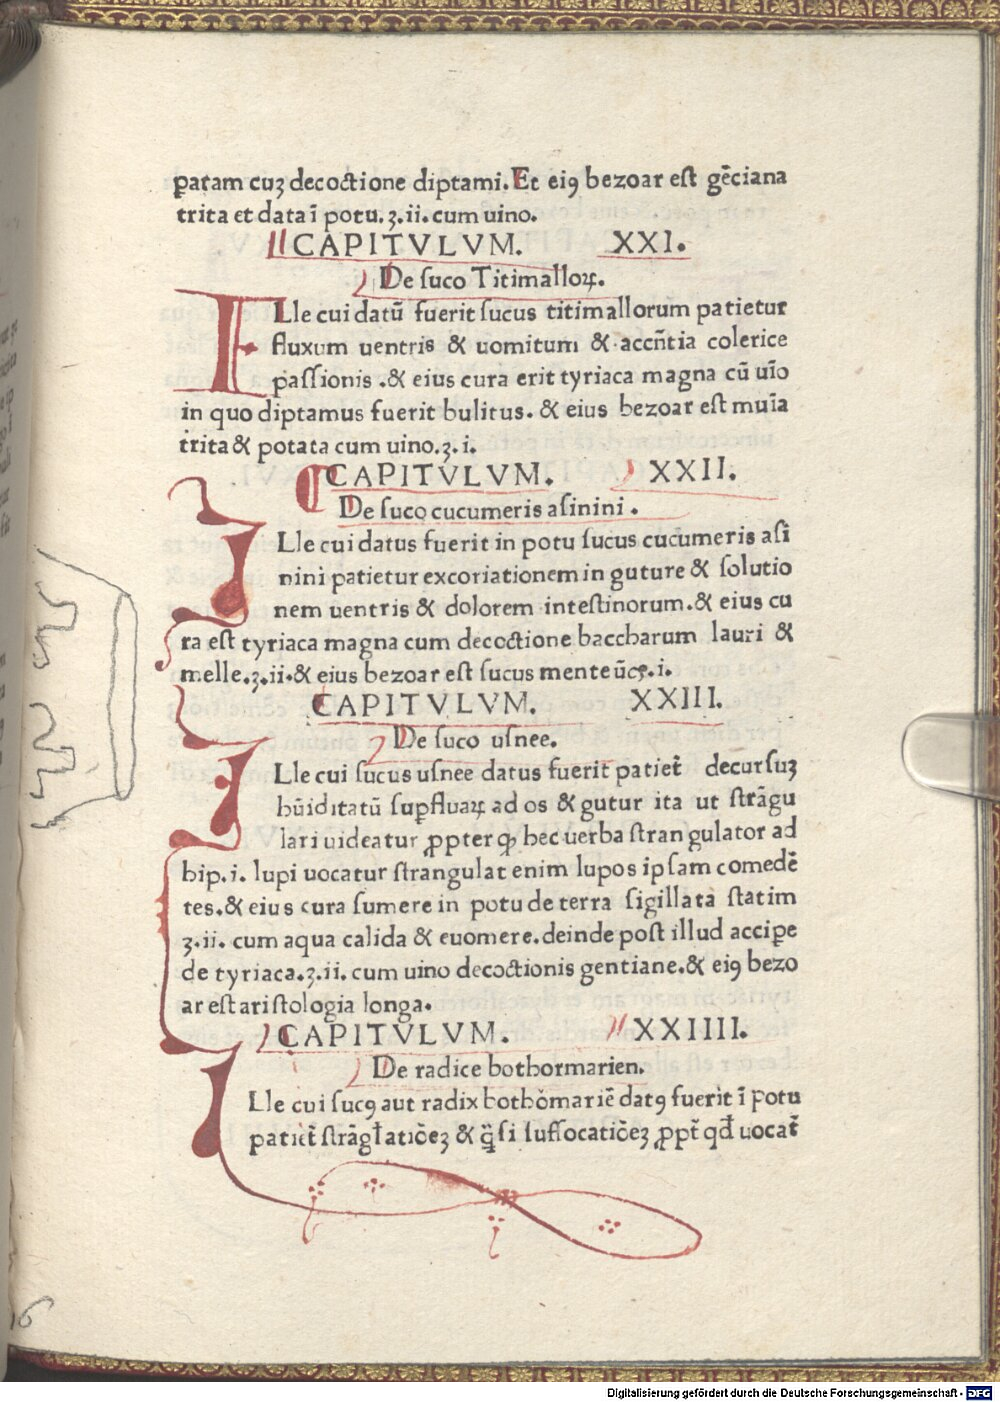 patam cuꝫ decoctione diptami. Et eiꝯ bezoar est gēciana
trita et data ī potu. ʒ. ii. cum uino.
CAPITVLVM. XXI.
De suco Titimalloꝝ.
ILle cui datū fuerit sucus titimallorum patietur
fluxum uentris & uomitum & accñtia colerice
passionis .& eius cura erit tyriaca magna cū uīo
in quo diptamus fuerit bulitus. & eius bezoar est muīa
trita & potata cum uino. ʒ. i.
CAPITVLVM. XXII.
De suco cucumeris asinini .
ILle cui datus fuerit in potu sucus cucumeris asi
nini patietur excoriationem in guture & solutio
nem uentris & dolorem intestinorum. & eius cu
ra est tyriaca magna cum decoctione baccharum lauri &
melle. ʒ. ii. & eius bezoar est sucus mente
CAPITVLVM. XXIII.
De suco usnee.
ILle cui sucus usnee datus fuerit patiet̄ decursuꝫ
hūiditatū suꝑfluaꝝ ad os & gutur ita ut strāgu
lari uideatur ꝓpter qꝫ hec uerba strangulator ad
hip. i. lupi uocatur strangulat enim lupos ipsam comedē
tes. & eius cura sumere in potu de terra sigillata statim
ʒ. ii. cum aqua calida & euomere. deinde post illud accipe
de tyriaca. ʒ. ii. cum uino decoctionis gentiane. & eiꝯ bezo
ar est aristologia longa.
CAPITVLVM. XXIIII.
De radice bothormarien.
ILle cui sucꝯ aut radix bothōmariē datꝯ fuerit ī potu
patiet̄ strāgl̄atiōeꝫ & q̄si suffocatiōeꝫ ꝓpt̄ qd̄ uocat̄
16
Digitalisierung gefördert durch die Deutsche Forschungsgemeinschaft - DFG